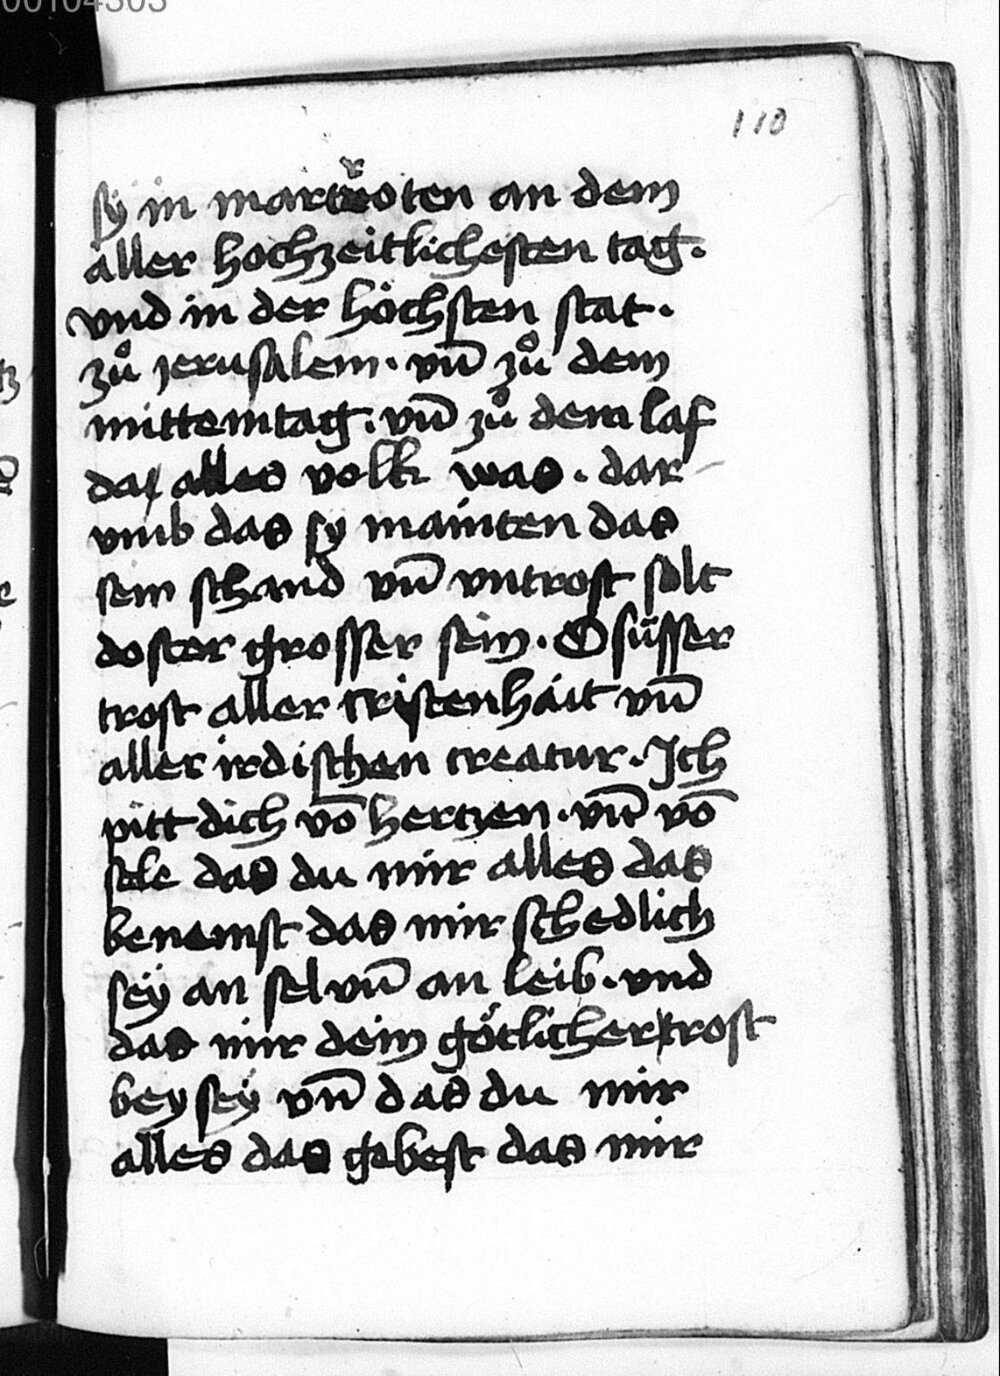 00104303
110
sÿ in martroten an dem
aller hochzeitlichesten tag.
vnd in der höchsten stat.
zů ierusalem. vn̄ zů dem
mittemtag. vn̄ zů dem las
das alles volk was. dar
vmb das sy mainten das
sein schand vn̄ vntrost solt
dester grosser sein. O süsser
trost aller cristenhait vn̄
aller irdischen creatur. Ich
pitt dich vō hertzen. vn̄ vō
sele das du mir alles das
benemst das mir schedlich
seÿ an sel vn̄ an leib. vnd
das mir dein götlicher trost
bey seÿ vn̄ das du mir
alles das gebest das mir